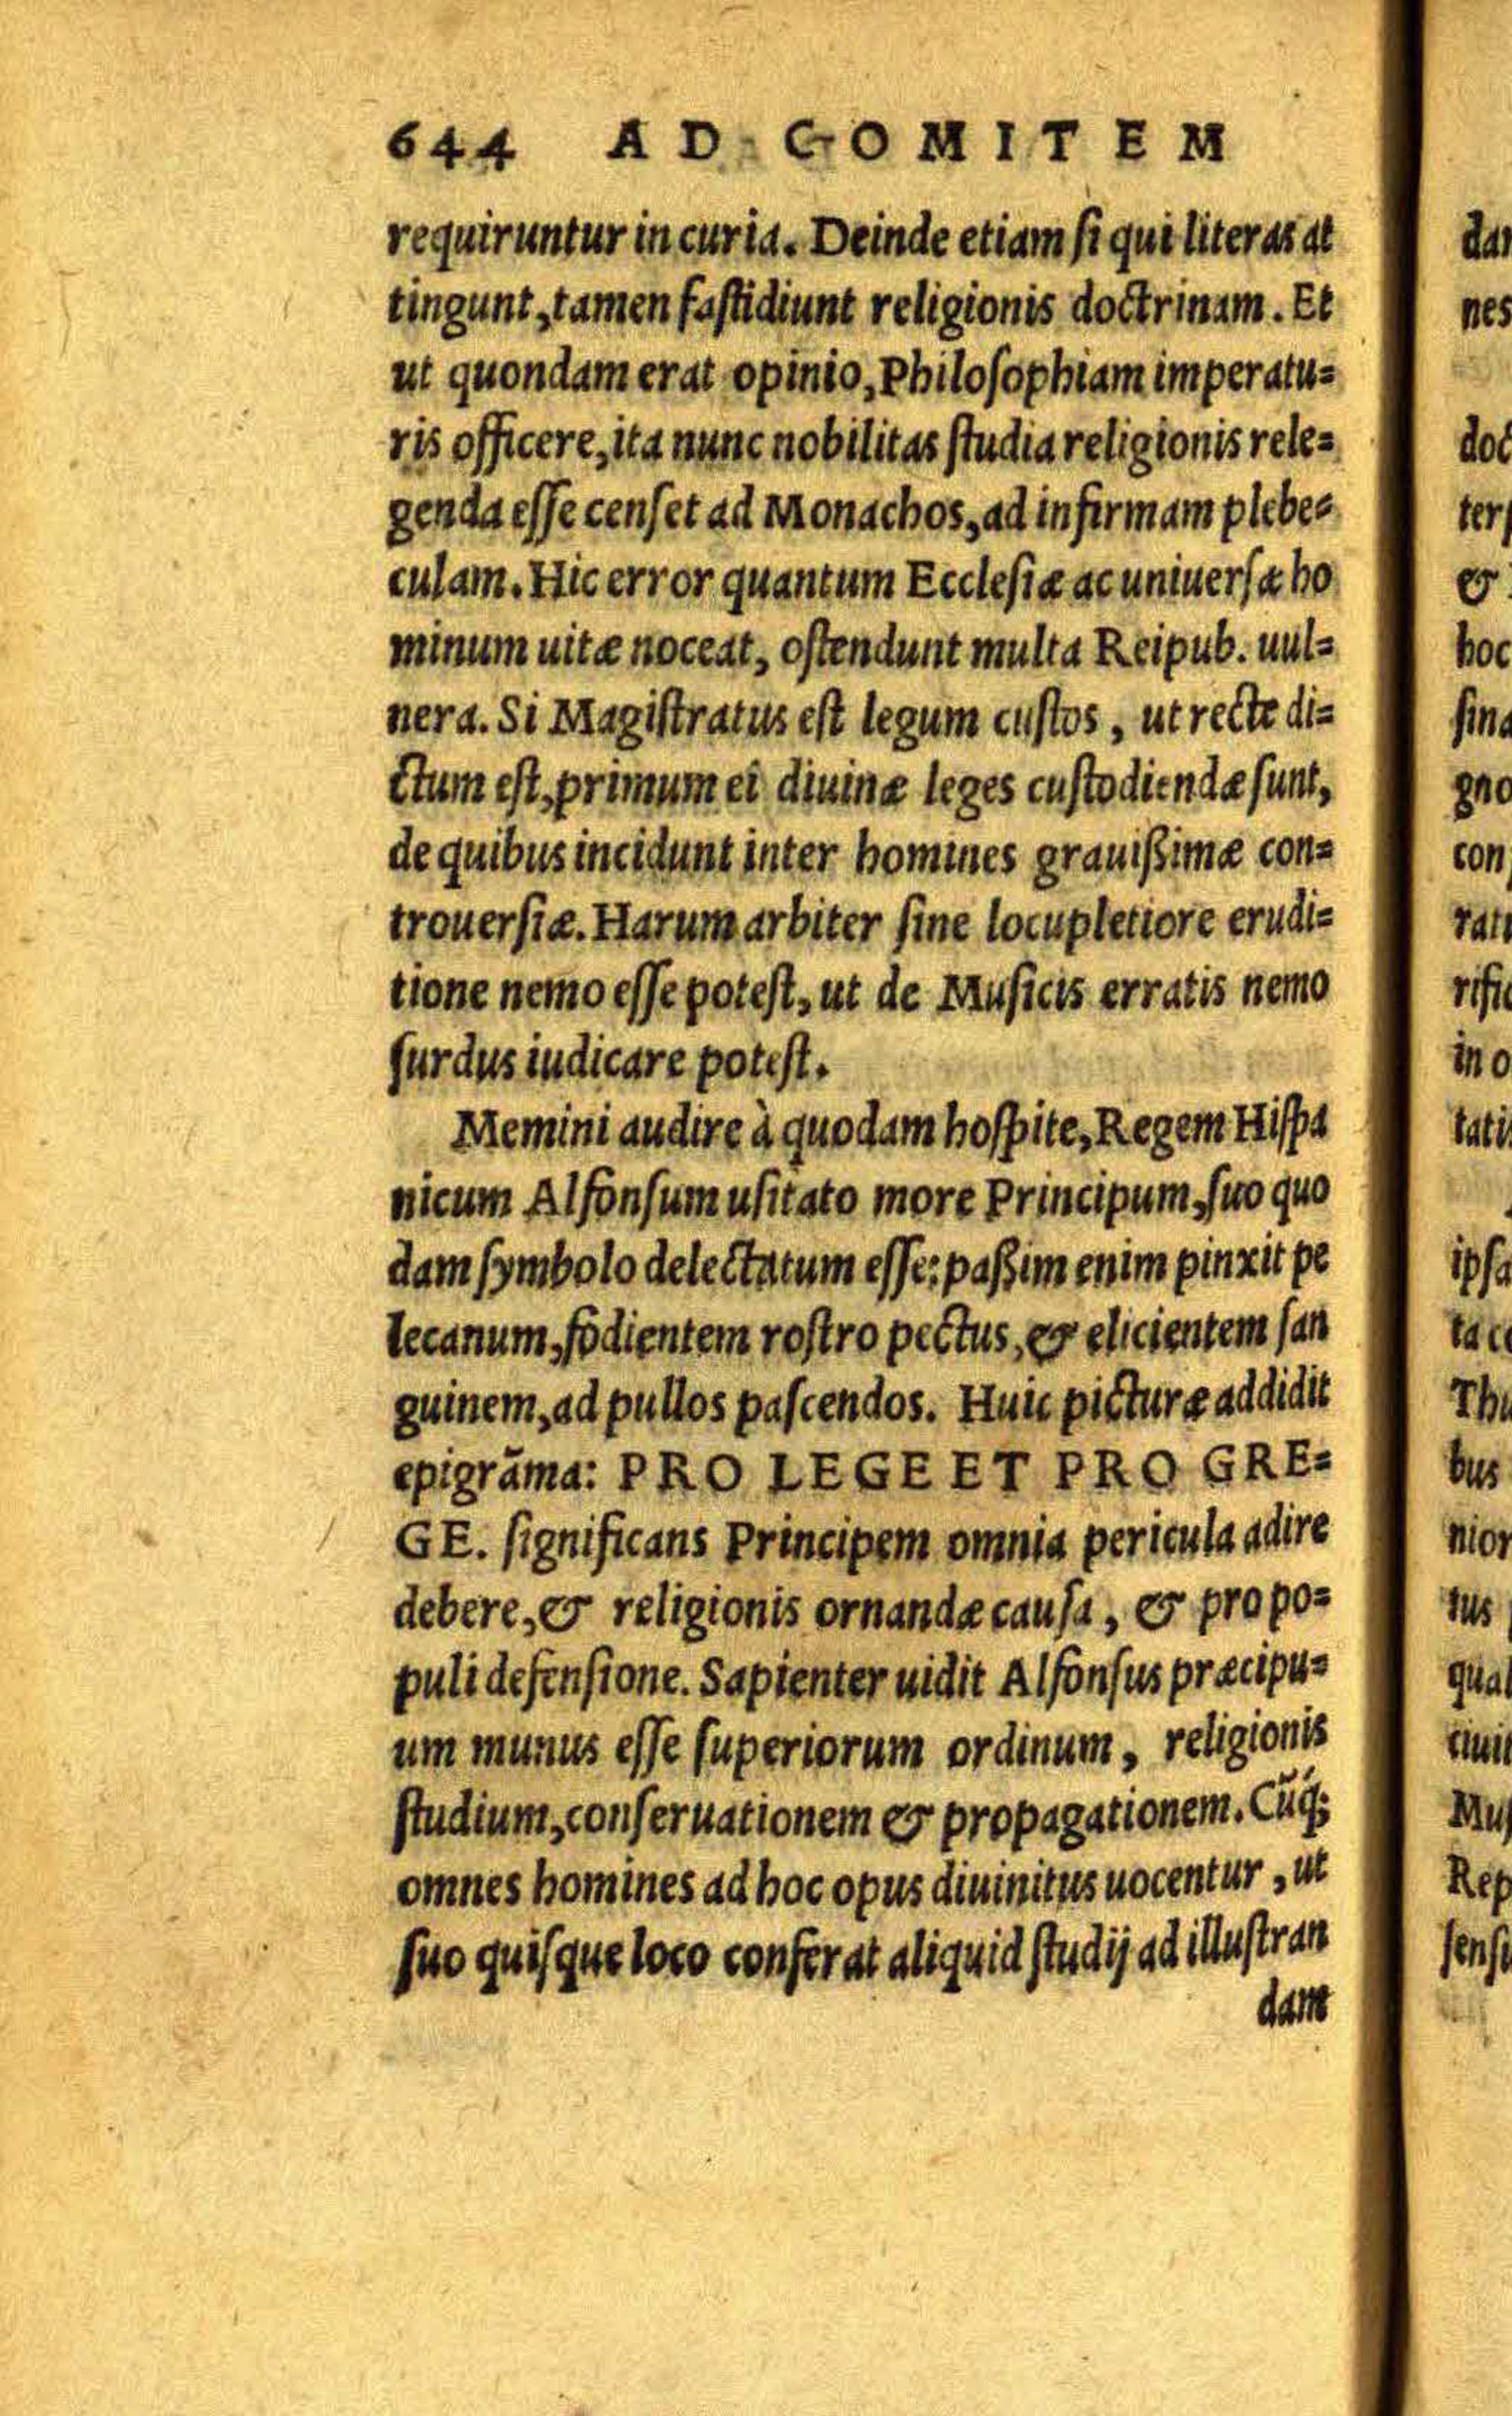 644 AD COMITEM
requiruntur in curia. Deinde etiam ſi qui literas at
tingunt, tamen faſtidiunt religionis doctrinam. Et
ut quondam erat opinio, Philoſophiam imperatu=
ris officere, ita nunc nobilitas ſtudia religionis rele=
genda eſſe cenſet ad Monachos, ad infirmam plebe=
culam. Hic error quantum Eccleſiæ ac uniuerſæ ho
minum uitæ noceat, oſtendunt multa Reipub. uul=
nera. Si Magiſtratus eſt legum cuſtos, ut recte di=
ctum eſt, primum ei diuinæ leges cuſtodiendæ ſunt,
de quibus incidunt inter homines grauißimæ con=
trouerſiæ. Harum arbiter ſine locupletiore erudi=
tione nemo eſſe poteſt, ut de Muſicis erratis nemo
ſurdus iudicare poteſt.
Memini audire à quodam hoſpite, Regem Hiſpa
nicum Alfonſum uſitato more Principum, ſuo quo
dam ſymbolo delectatum eſſe: paßim enim pinxit pe
lecanum, fodientem roſtro pectus, & elicientem ſan
guinem, ad pullos paſcendos. Huic picturæ addidit
epigrāma: PRO LEGE ET PRO GRE=
GE. ſignificans Principem omnia pericula adire
debere, & religionis ornandæ cauſa, & pro po=
puli defenſione. Sapienter uidit Alfonſus præcipu=
um munus eſſe ſuperiorum ordinum, religionis
ſtudium, conſeruationem & propagationem. Cūq́;
omnes homines ad hoc opus diuinitus uocentur, ut
ſuo quiſque loco conferat aliquid ſtudij ad illuſtran
dam
dar
nes
doc
terſ
&
hoc
ſina
gno
con
rati
rifi
in o
tati
ipſa
ta c
Thu
bus
nior
tus
qual
ciui
Muſ
Rep
ſenſ